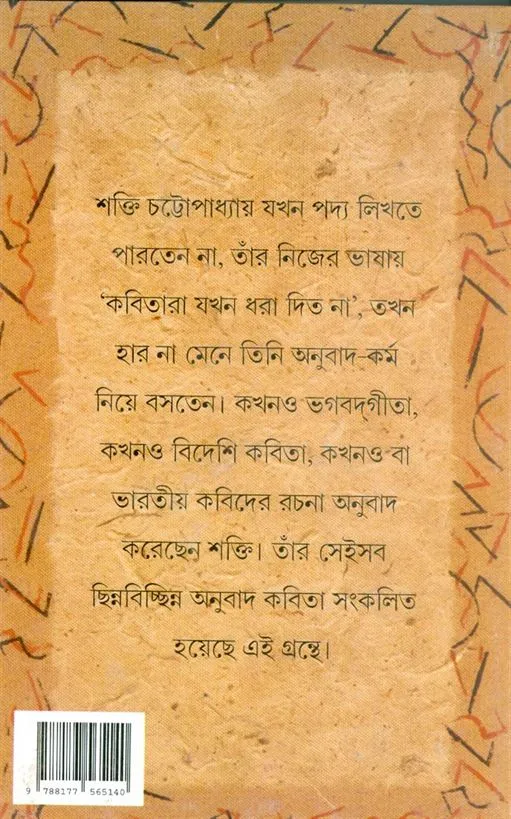 শক্তি চট্টোপাধ্যায় যখন পদ্য লিখতে
পারতেন না, তাঁর নিজের ভাষায়
‘কবিতারা যখন ধরা দিত না’, তখন
হার না মেনে তিনি অনুবাদ-কর্ম
নিয়ে বসতেন। কখনও ভগবদ্‌গীতা,
কখনও বিদেশি কবিতা, কখনও বা
ভারতীয় কবিদের রচনা অনুবাদ
করেছেন শক্তি। তাঁর সেইসব
ছিন্নবিচ্ছিন্ন অনুবাদ কবিতা সংকলিত
হয়েছে এই গ্রন্থে।
9 788177 565140